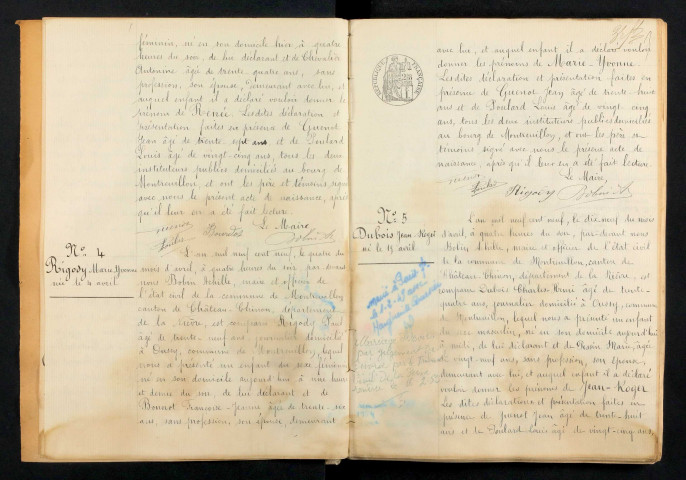 féminin, né en son domicile hier, à quatre
heures du soir, de lui déclarant et de Chevalier
Antoinette âgée de trente quatre ans, sans
profession, son épouse, demeurant avec lui, et
auquel enfant il a déclaré vouloir donner le
prénom de Renée. Lesdites déclaration et
présentation faites en présence de Guenot
Jean âgé de trente sept ans et de Poulard
Louis âgé de vingt-cinq ans, tous les deux
instituteurs publics domiciliés au bourg de
Montreuillon, et ont les père et témoins signé
avec nous le présent acte de naissance, après
qu'il leur en a été fait lecture.
Le Maire,
No 4
Rigody Marie-Yvonne
née le 4 avril
L'an mil neuf cent neuf, le quatre du
mois d'avril, à quatre heures du soir par devant
nous Bobin Achille, maire et officier de
l'état civil de la commune de Montreuillon
canton de Château-Chinon, département
de la Nièvre, est comparu Rigody Paul
âgé de trente-neuf ans, journalier domicilié
à Cussy, commune de Montreuillon, lequel
nous a présenté un enfant du sexe féminin
né en son domicile aujourd'hui, à une heure
et demie du soir, de lui déclarant et de
Bonnot Françoise-Jeanne âgée de trente-six
ans, sans profession, son épouse, demeurant
avec lui, et auquel enfant il a déclaré vouloir
donner les prénoms de Marie-Yvonne.
Lesdites déclaration et présentation faites en
présence de Guenot Jean âgé de trente-huit
ans et de Poulard Louis âgé de vingt cinq
ans, tous les deux instituteurs publics domiciliés
au bourg de Montreuillon, et ont les père et
témoins signé avec nous le présent acte de
naissance, après qu'il leur en a été fait lecture.
Le Maire,
Rigody
No 5
Dubois Jean-Roger
né le 19 avril
L'an mil neuf cent neuf, le dix-neuf du mois
d'avril, à quatre heures du soir, par-devant nous
Bobin Achille, maire et officier de l'état civil
de la commune de Montreuillon, canton de
Château-Chinon, département de la Nièvre, est
comparu Dubois Charles-Henri âgé de trente-
quatre ans, journalier domicilié à Cussy, commune
de Montreuillon, lequel nous a présenté un enfant
du sexe masculin, né en son domicile aujourd'hui
à midi, de lui déclarant et de Marie, âgée
de vingt-neuf ans, sans profession, son épouse,
demeurant avec lui, et auquel enfant il a déclaré
vouloir donner les prénoms de Jean-Roger
Les dites déclarations et présentation faites en
présence de Guenot Jean âgé de trente-huit
ans et de Poulard Louis âgé de vingt-cinq ans,